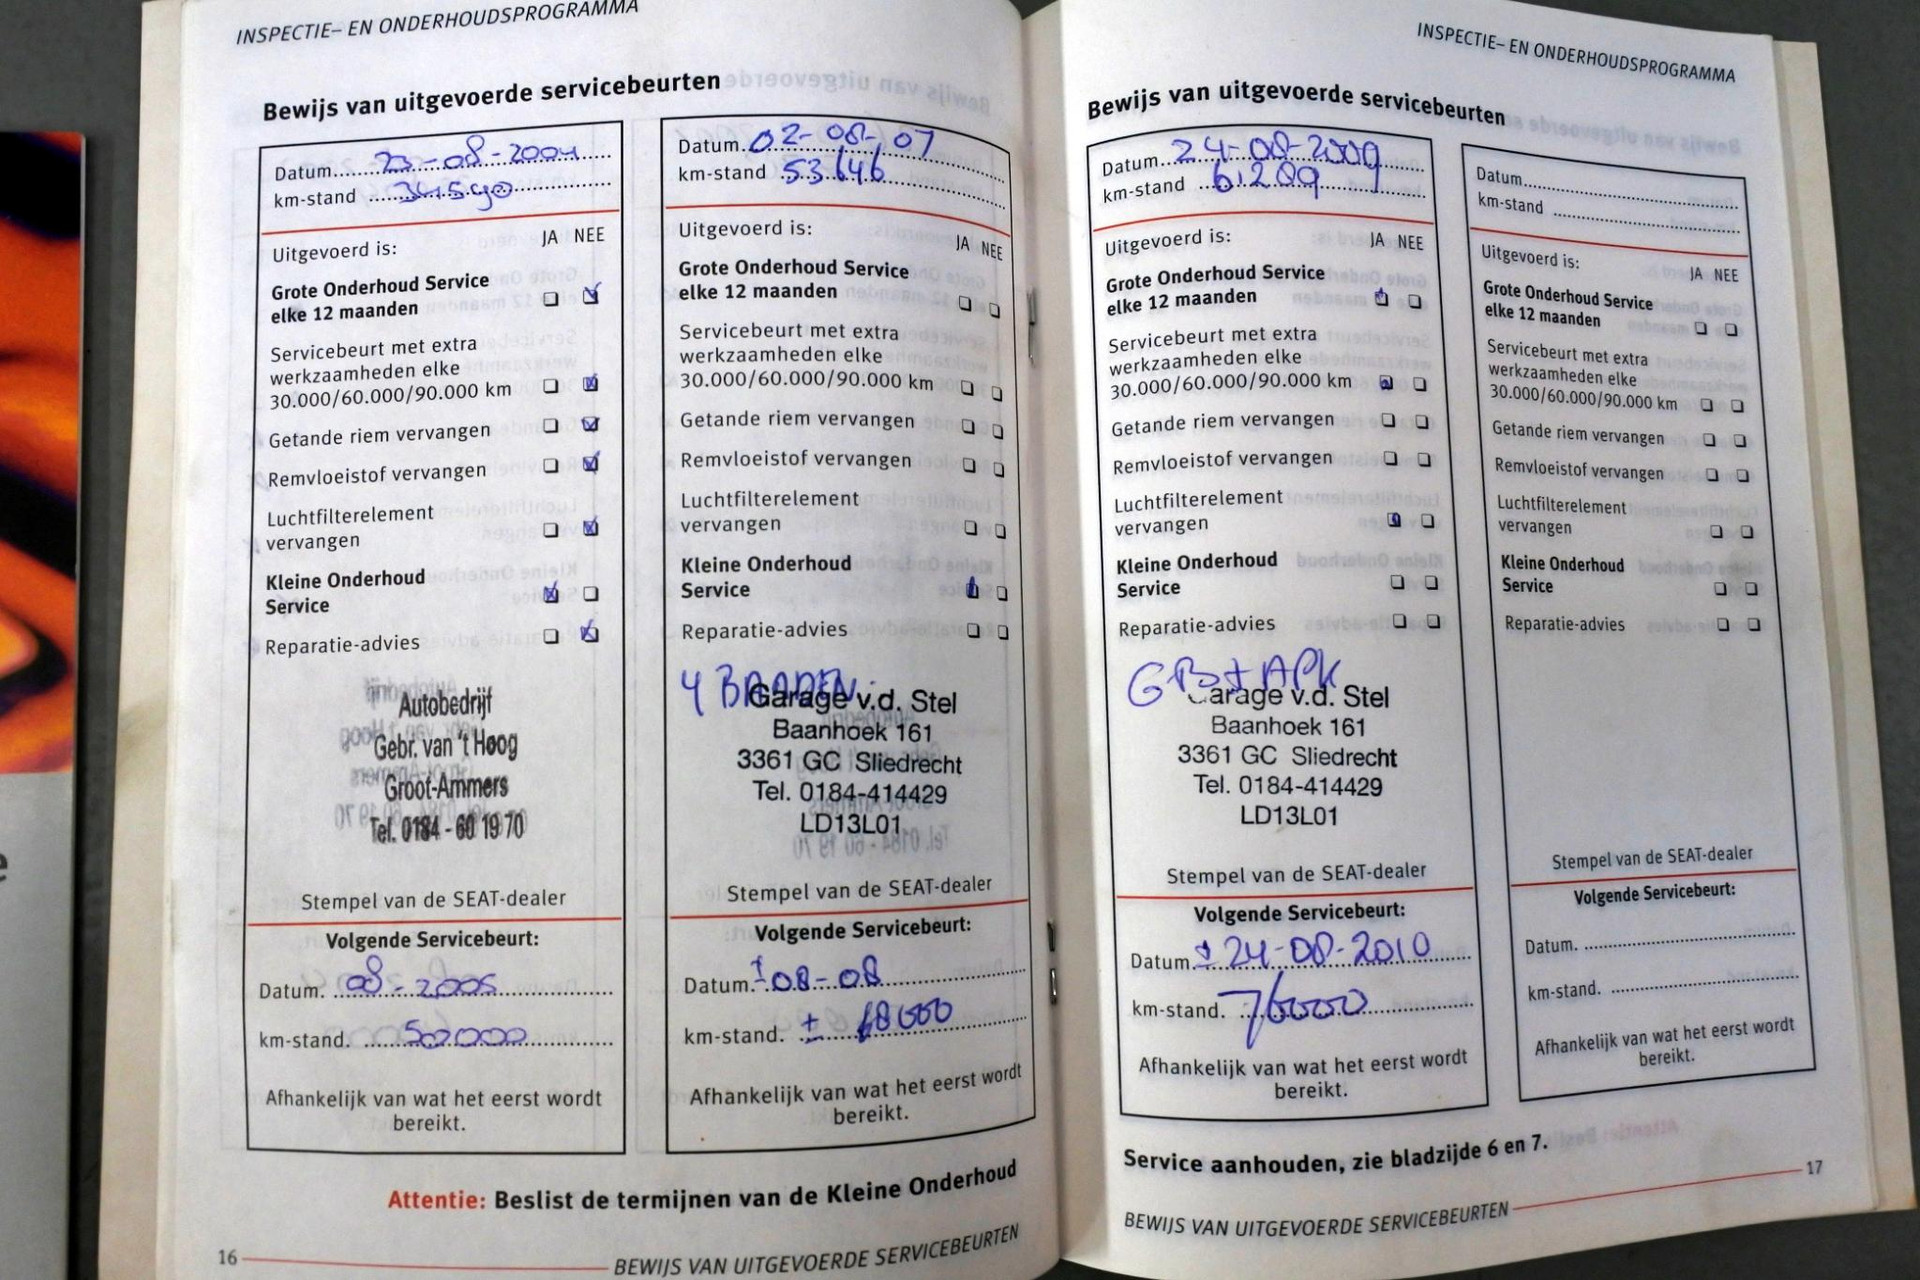 INSPECTIE– EN ONDERHOUDSPROGRAMMA
Bewijs van uitgevoerde servicebeurten
Datum. 23-08-2004
km-stand
Uitgevoerd is:
JA NEE
Grote Onderhoud Service
elke 12 maanden
Servicebeurt met extra
werkzaamheden elke
30.000/60.000/90.000 km
Getande riem vervangen
Remvloeistof vervangen
Luchtfilterelement
vervangen
Kleine Onderhoud
Service
Reparatie-advies
Autobedrijf
Gebr. van 't Hoog
Groot-Ammers
Tel. 0184 - 60 19 70
Stempel van de SEAT-dealer
Volgende Servicebeurt:
Datum. 08-2005
km-stand. 50000
Afhankelijk van wat het eerst wordt
bereikt.
Datum. 02-08-07
km-stand 53646
Uitgevoerd is:
JA NEE
Grote Onderhoud Service
elke 12 maanden
Servicebeurt met extra
werkzaamheden elke
30.000/60.000/90.000 km
Getande riem vervangen
Remvloeistof vervangen
Luchtfilterelement
vervangen
Kleine Onderhoud
Service
Reparatie-advies
4 BANDEN.
Garage v.d. Stel
Baanhoek 161
3361 GC Sliedrecht
Tel. 0184-414429
LD13L01
Stempel van de SEAT-dealer
Volgende Servicebeurt:
Datum. ± 08-08
km-stand. ± 68000
Afhankelijk van wat het eerst wordt
bereikt.
Attentie: Beslist de termijnen van de Kleine Onderhoud
16
BEWIJS VAN UITGEVOERDE SERVICEBEURTEN
INSPECTIE– EN ONDERHOUDSPROGRAMMA
Bewijs van uitgevoerde servicebeurten
Datum. 24-08-2009
km-stand 61209
Uitgevoerd is:
JA NEE
Grote Onderhoud Service
elke 12 maanden
Servicebeurt met extra
werkzaamheden elke
30.000/60.000/90.000 km
Getande riem vervangen
Remvloeistof vervangen
Luchtfilterelement
vervangen
Kleine Onderhoud
Service
Reparatie-advies
GB + APK
Garage v.d. Stel
Baanhoek 161
3361 GC Sliedrecht
Tel. 0184-414429
LD13L01
Stempel van de SEAT-dealer
Volgende Servicebeurt:
Datum. ± 24-08-2010
km-stand. 76000
Afhankelijk van wat het eerst wordt
bereikt.
Datum.
km-stand
Uitgevoerd is:
JA NEE
Grote Onderhoud Service
elke 12 maanden
Servicebeurt met extra
werkzaamheden elke
30.000/60.000/90.000 km
Getande riem vervangen
Remvloeistof vervangen
Luchtfilterelement
vervangen
Kleine Onderhoud
Service
Reparatie-advies
Stempel van de SEAT-dealer
Volgende Servicebeurt:
Datum.
km-stand.
Afhankelijk van wat het eerst wordt
bereikt.
Service aanhouden, zie bladzijde 6 en 7.
17
BEWIJS VAN UITGEVOERDE SERVICEBEURTEN